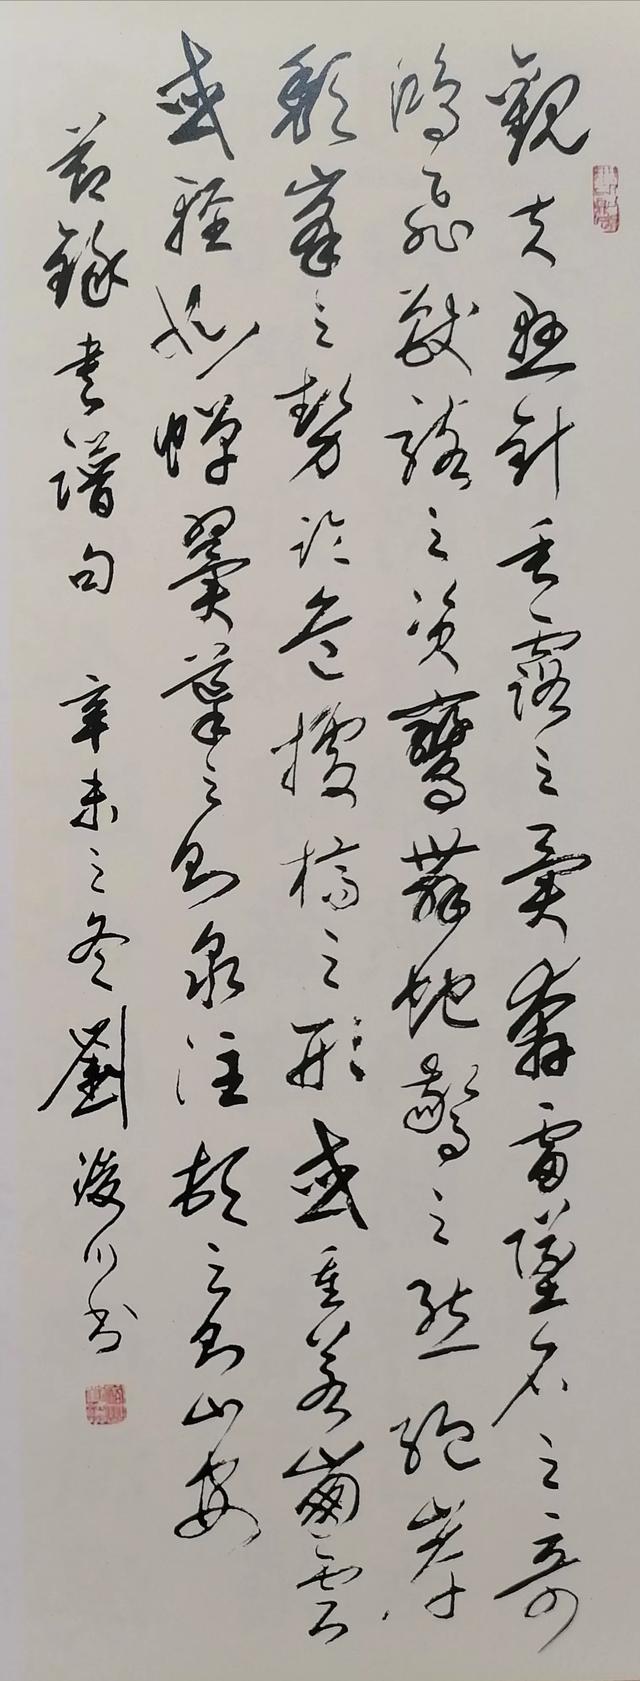 觀夫懸針垂露之異奔雷墜石之奇
鴻飛獸駭之資鸞舞蛇驚之態絕岸
頹峯之勢臨危據槁之形或重若崩雲
或輕如蟬翼導之則泉注頓之則山安
節錄書譜句 辛未之冬劉浚川書